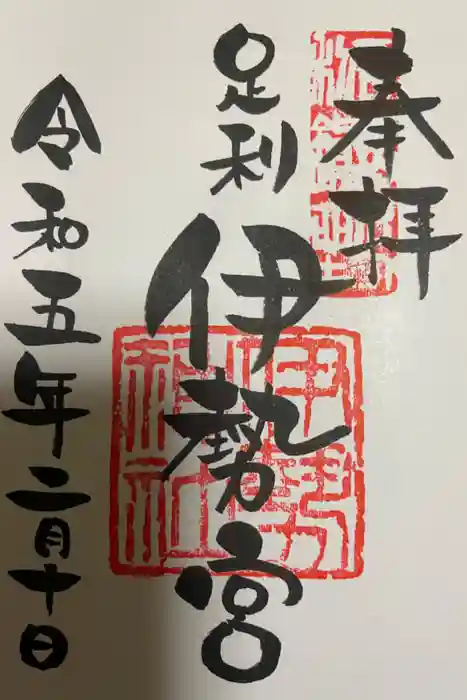 奉拝
足利
伊勢宮
伊勢
神社
令和五年二月十日